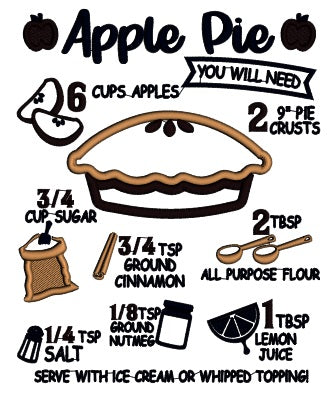 Apple Pie
YOU WILL NEED
6 CUPS APPLES
2 9" PIE
CRUSTS
3/4
CUP SUGAR
3/4 TSP
GROUND
CINNAMON
2 TBSP
ALL PURPOSE FLOUR
1/4 TSP
SALT
1/8 TSP
GROUND
NUTMEG
1 TBSP
LEMON
JUICE
SERVE WITH ICE CREAM OR WHIPPED TOPPING!